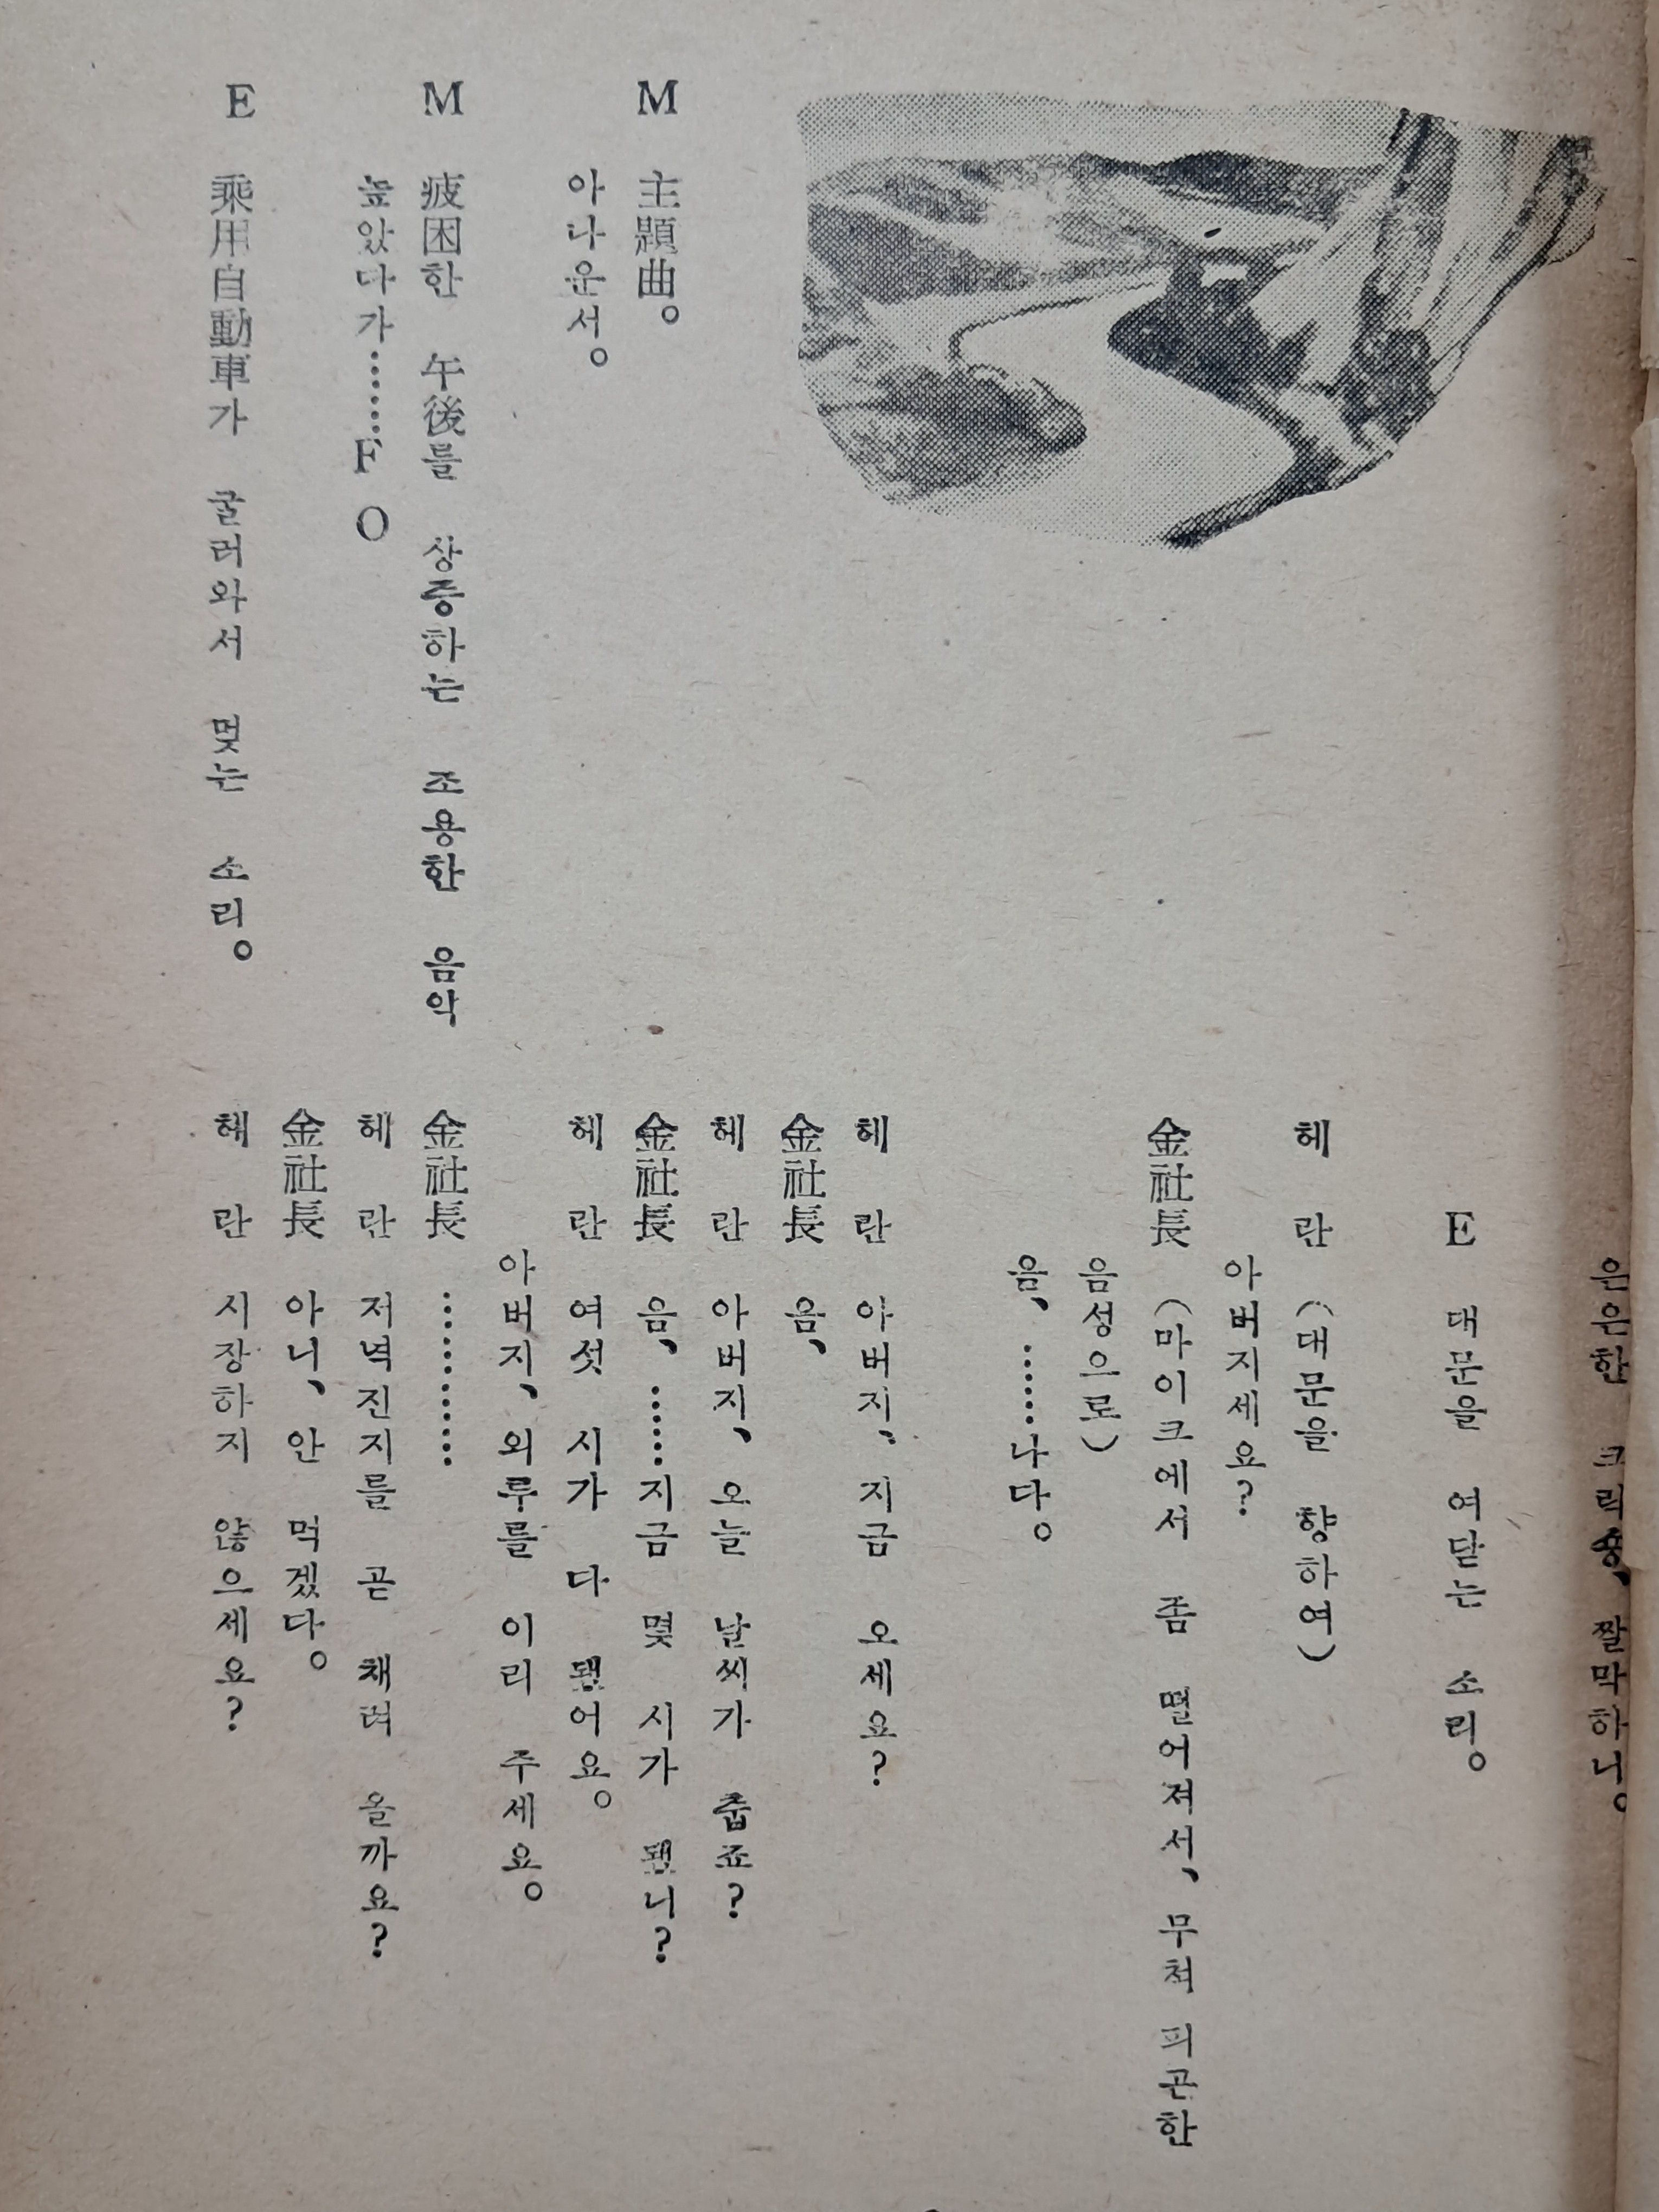 M 主題曲。
아나운서。
M 疲困한 午後를 상증하는 조용한 음악
높았다가……F O
E 乘用自動車가 굴러와서 멎는 소리。
은은한 짤막하니。
E 대문을 여닫는 소리。
헤 란 (대문을 향하여)
아버지세요?
金社長 (마이크에서 좀 떨어져서、무척 피곤한
음성으로)
음、……나다。
헤 란 아버지、지금 오세요?
金社長 음、
헤 란 아버지、오늘 날씨가 춥죠?
金社長 음、……지금 몇 시가 됐니?
헤 란 여섯 시가 다 됐어요。
아버지、외투를 이리 주세요。
金社長 …………
헤 란 저녁진지를 곧 채려 올까요?
金社長 아니、안 먹겠다。
헤 란 시장하지 않으세요?